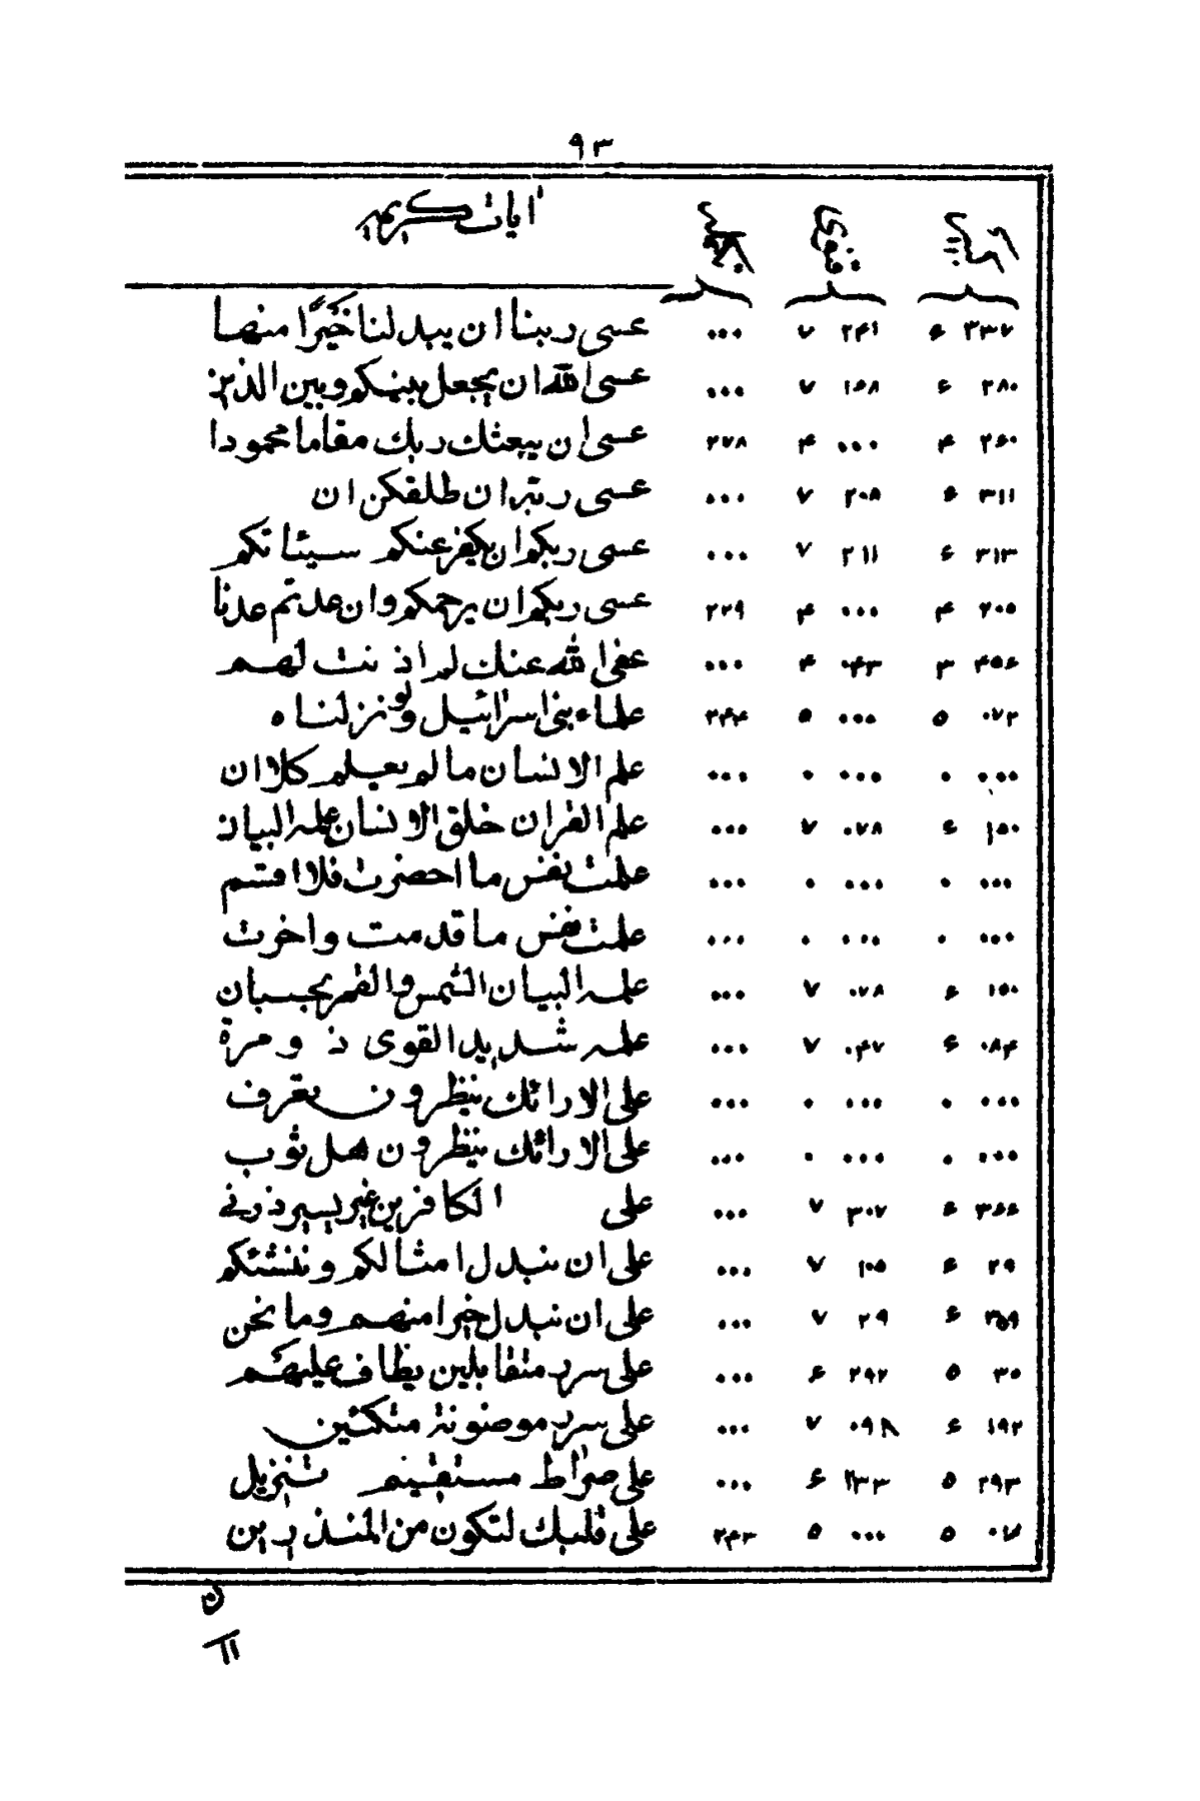 ٩٣
ايات كريمه
٣٣٧ ۶ ٢٤١ ٧ ... عسى ربنا ان يبدلنا خيرًا منها
٢٨٠ ۶ ١٦٨ ٧ ... عسى الله ان يجعل بينكم وبين الذين
٢۶٠ ۴ ... ۴ ٢٧٨ عسى ان يبعثك ربك مقاما محمودا
٣١١ ۶ ٢٠٨ ٧ ... عسى ربه ان طلقكن ان
٣١٣ ۶ ٢١١ ٧ ... عسى ربكم ان يكفر عنكم سيئاتكم
٢٠۵ ۴ ... ۴ ٢٢٩ عسى ربكم ان يرحمكم وان عدتم عدنا
۴۵۶ ٣ ٠۴٣ ۴ ... عفى الله عنك لم اذنت لهم
٠٧٢ ۵ ... ۵ ٢۴۴ علماء بنى اسرائيل ولو نزلناه
... ٠ ... ٠ ... علم الانسان مالم يعلم كلا ان
١۵٠ ۶ ٠٧٨ ٧ ... علم القران خلق الانسان علمه البيان
... ٠ ... ٠ ... علمت نفس ما احضرت فلا اقسم
... ٠ ... ٠ ... علمت نفس ما قدمت واخرت
١۵٠ ۶ ٠٧٨ ٧ ... علمه البيان الشمس والقمر بحسبان
٠٨۴ ۶ ٠۴٧ ٧ ... علمه شديد القوى ذو مرة
... ٠ ... ٠ ... على الارائك ينظرون تعرف
... ٠ ... ٠ ... على الارائك ينظرون هل ثوب
٣۶۶ ۶ ٣٠٧ ٧ ... على الكافرين غير يسير ذرنى
٢٩ ۶ ١٠۵ ٧ ... على ان نبدل امثالكم وننشئكم
٣۵٩ ۶ ٢٩ ٧ ... على ان نبدل خيرا منهم وما نحن
٣٠ ۵ ٢٩٢ ۶ ... على سرر متقابلين يطاف عليهم
١٩٢ ۶ ٠٩٨ ٧ ... على سرر موضونة متكئين
٢٩٣ ۵ ٢٣٣ ۶ ... على صراط مستقيم تنزيل
٠٧ ۵ ... ۵ ٢۴٣ على قلبك لتكون من المنذرين